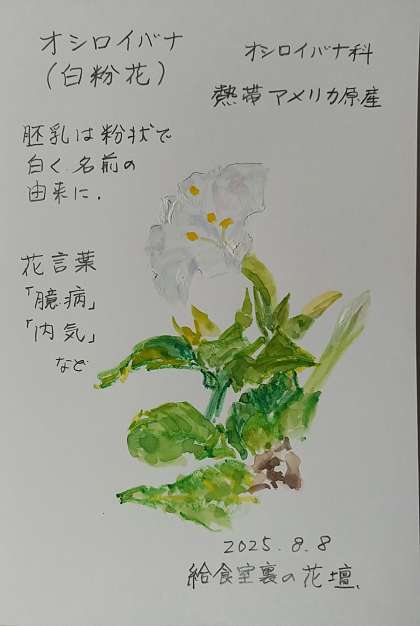 オシロイバナ
(白粉花)
オシロイバナ科
熱帯アメリカ原産
胚乳は粉状で
白く、名前の
由来に.
花言葉
「臆病」
「内気」
など
2025.8.8
給食室裏の花壇.